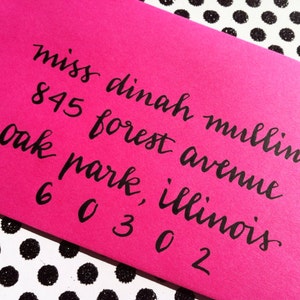 miss dinah mullin
845 forest avenue
oak park, illinois
60302